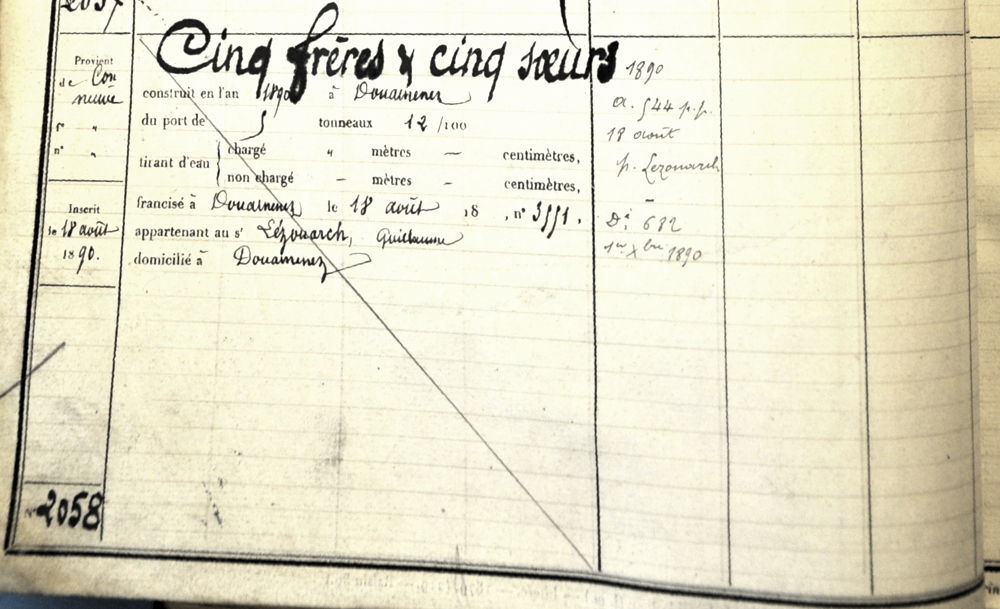 2057
Cinq frères & cinq sœurs
Provient
de Con
neuve
fº "
nº "
construit en l'an 1890 à Douarnenez
du port de 5 tonneaux 12/100
tirant d'eau { chargé " mètres — centimètres,
non chargé — mètres — centimètres,
francisé à Douarnenez le 18 août 18 , nº 3551.
appartenant au sr Lézouarch, Guillaume
domicilié à Douarnenez
Inscrit
le 18 août
1890.
Nº 2058
1890
a. 544 p.p.
18 août
p. Lezouarch
Dt 682
1er Xbre 1890